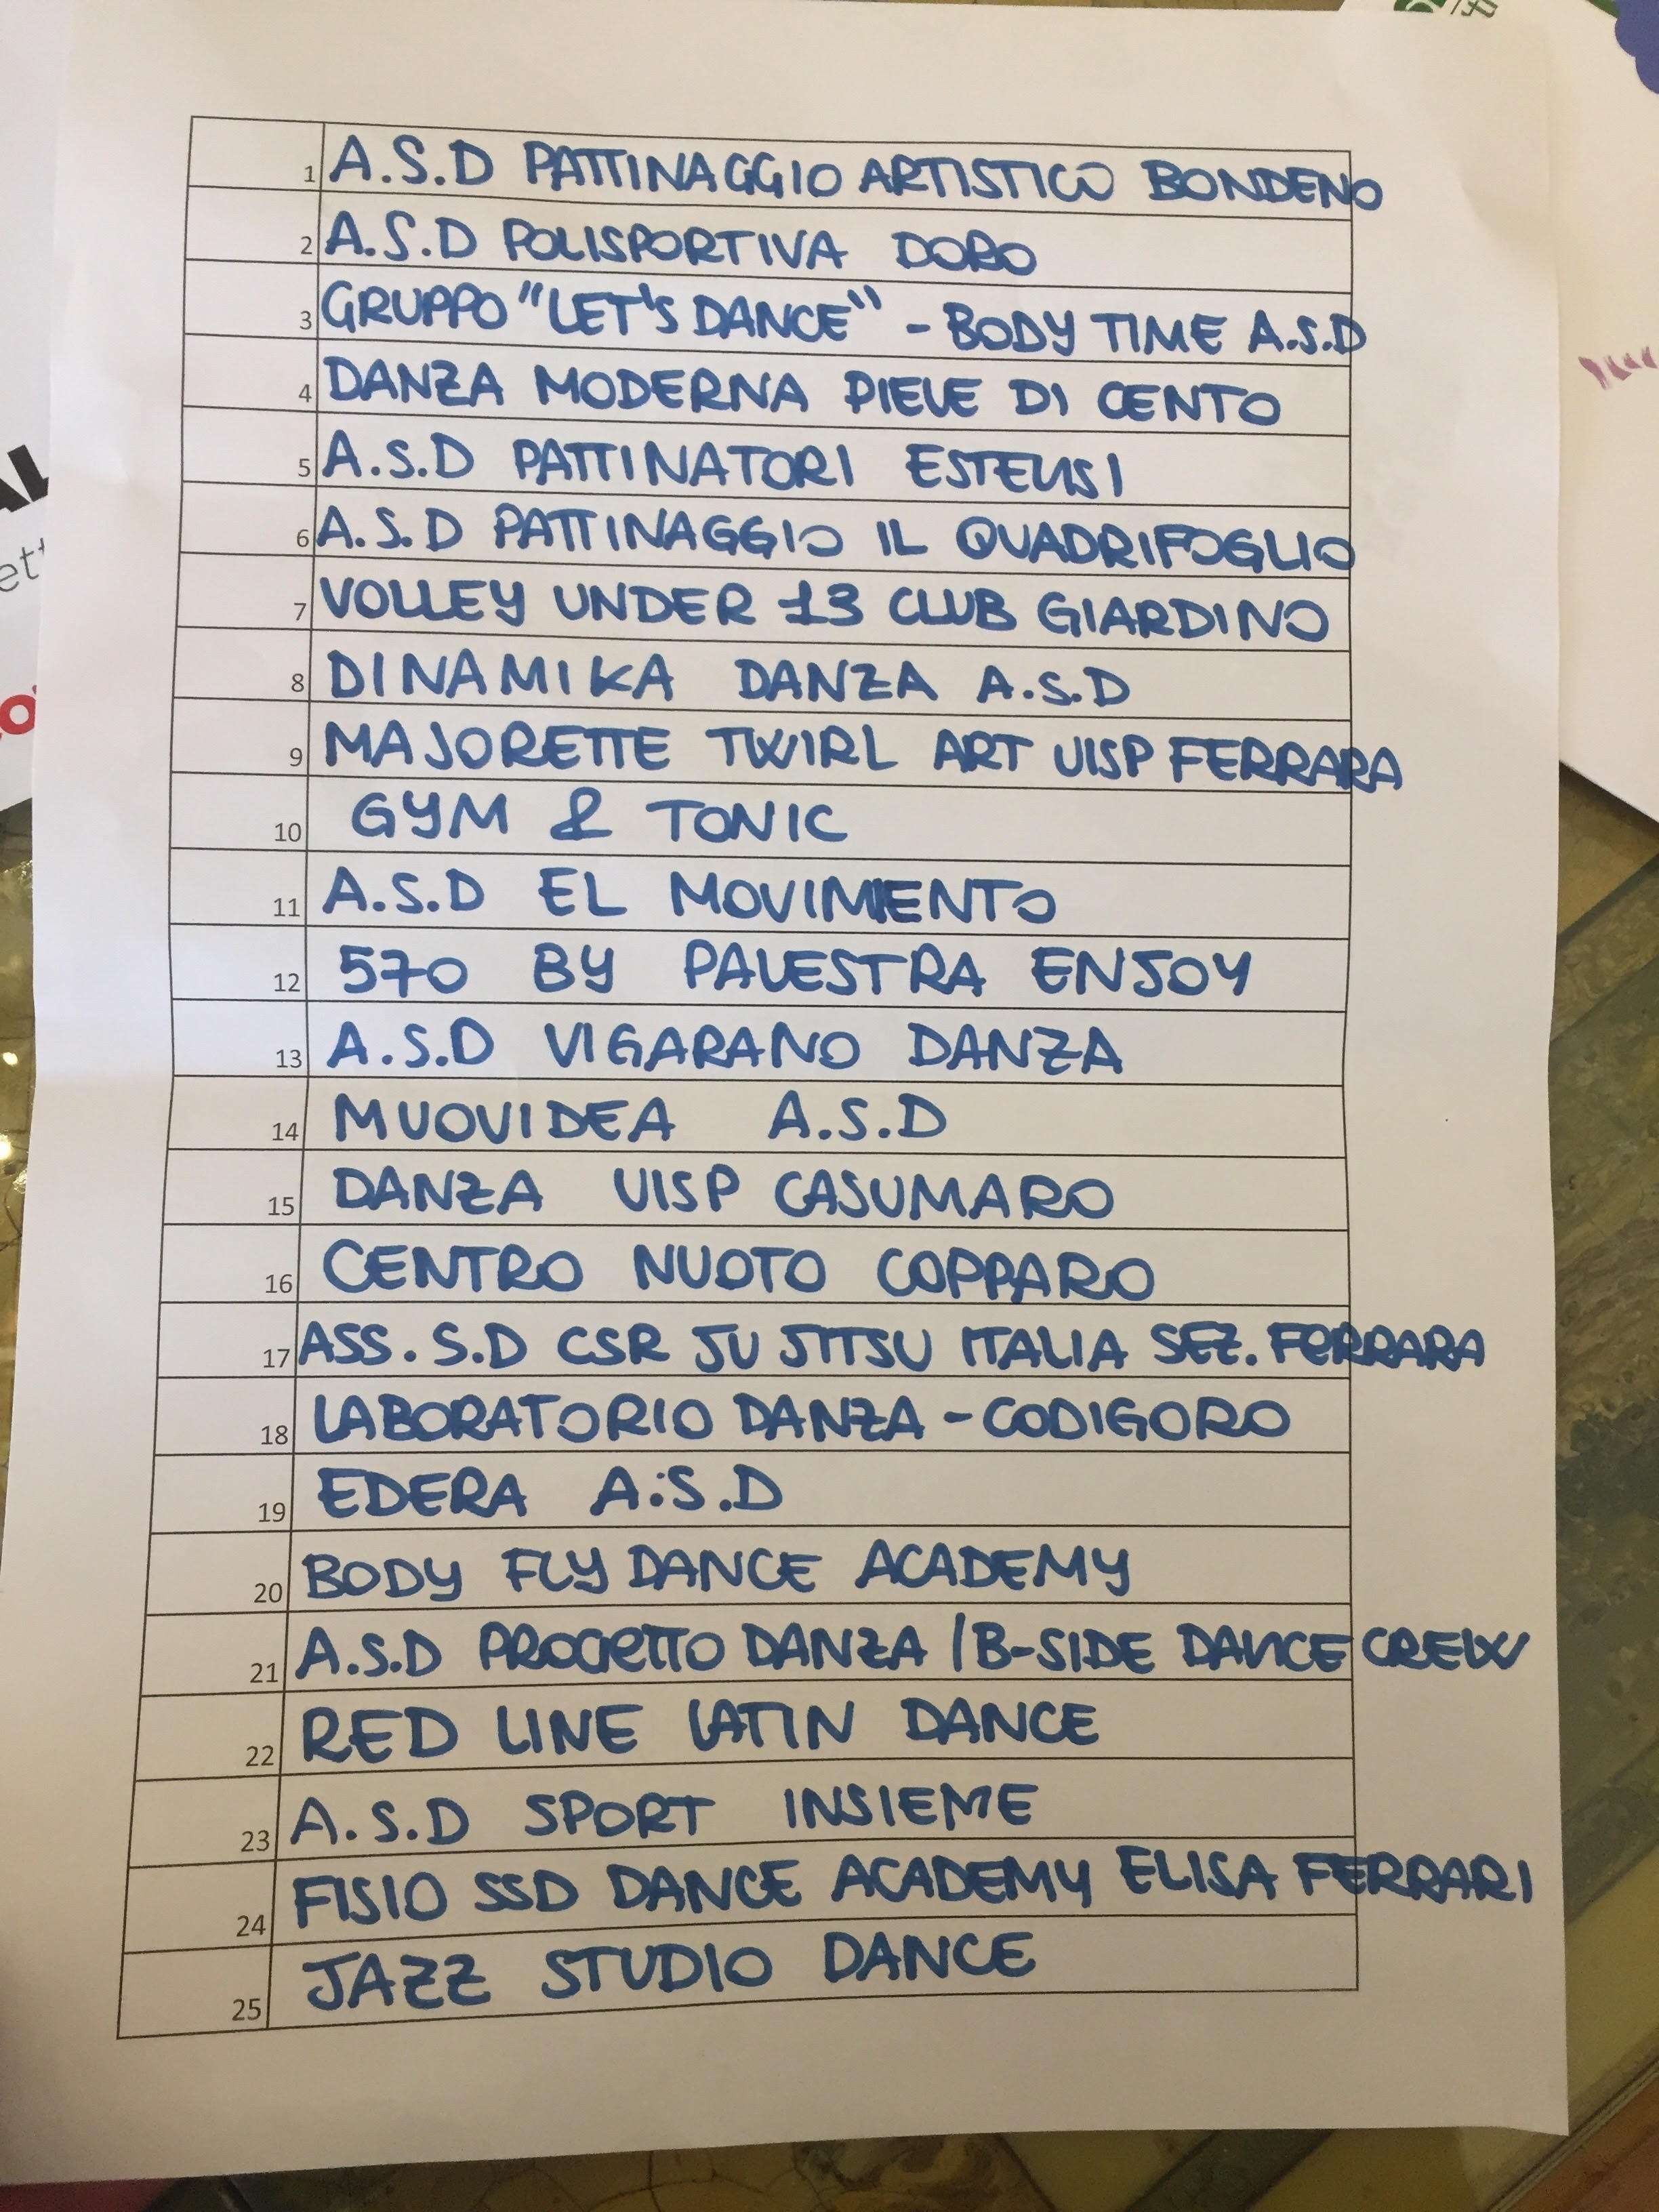 1 A.S.D PATTINAGGIO ARTISTICO BONDENO
2 A.S.D POLISPORTIVA DORO
3 GRUPPO "LET'S DANCE" - BODY TIME A.S.D
4 DANZA MODERNA PIEVE DI CENTO
5 A.S.D PATTINATORI ESTENSI
6 A.S.D PATTINAGGIO IL QUADRIFOGLIO
7 VOLLEY UNDER 13 CLUB GIARDINO
8 DINAMIKA DANZA A.S.D
9 MAJORETTE TWIRL ART UISP FERRARA
10 GYM & TONIC
11 A.S.D EL MOVIMIENTO
12 570 BY PALESTRA ENJOY
13 A.S.D VIGARANO DANZA
14 MUOVIDEA A.S.D
15 DANZA UISP CASUMARO
16 CENTRO NUOTO COPPARO
17 ASS. S.D CSR JU JITSU ITALIA SEZ. FERRARA
18 LABORATORIO DANZA - CODIGORO
19 EDERA A.S.D
20 BODY FLY DANCE ACADEMY
21 A.S.D PROGETTO DANZA / B-SIDE DANCE CREW
22 RED LINE LATIN DANCE
23 A.S.D SPORT INSIEME
24 FISIO SSD DANCE ACADEMY ELISA FERRARI
25 JAZZ STUDIO DANCE